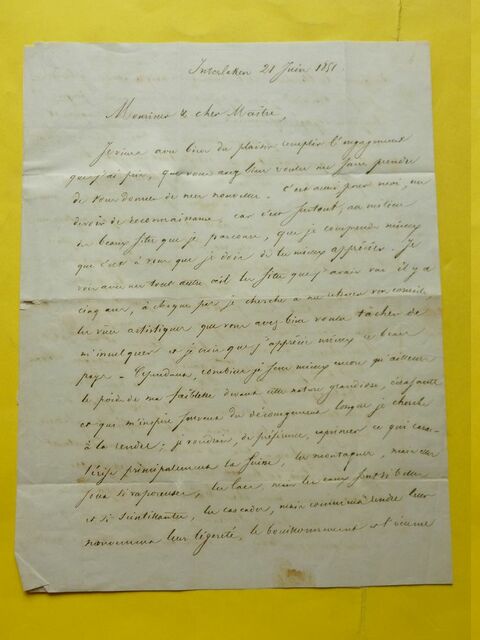 Interlaken 21 Juin 1851
Monsieur & cher Maître,
Je viens avec bien du plaisir remplir l'engagement
que j'ai pris, que vous avez bien voulu me faire prendre
de vous donner de mes nouvelles. c'est aussi pour moi, un
devoir de reconnaissance, car c'est surtout, au milieu
de beaux sites que je parcours, que je comprends mieux
que c'est à vous que je dois de les mieux apprécier. Je
vois avec un tout autre œil les sites que j'avais vus il y a
cinq ans, à chaque pas je cherche à me retracer vos conseils
les vues artistiques que vous avez bien voulu tâcher de
m'inculquer et je crois que j'apprécie mieux ce beau
pays - Cependant, combien je sens mieux encore qu'ailleurs
le poids de ma faiblesse devant cette nature grandiose, écrasante
ce qui m'inspire souvent du découragement lorsque je cherche
à la rendre; je voudrais, de préférence, exprimer ce qui carac-
térise principalement la Suisse, les montagnes, mais elles
sont si vaporeuses, les lacs, mais les eaux sont si bleues
et si scintillantes, les cascades, mais comment rendre leur
mouvement leur légèreté, le bouillonnement et l'écume